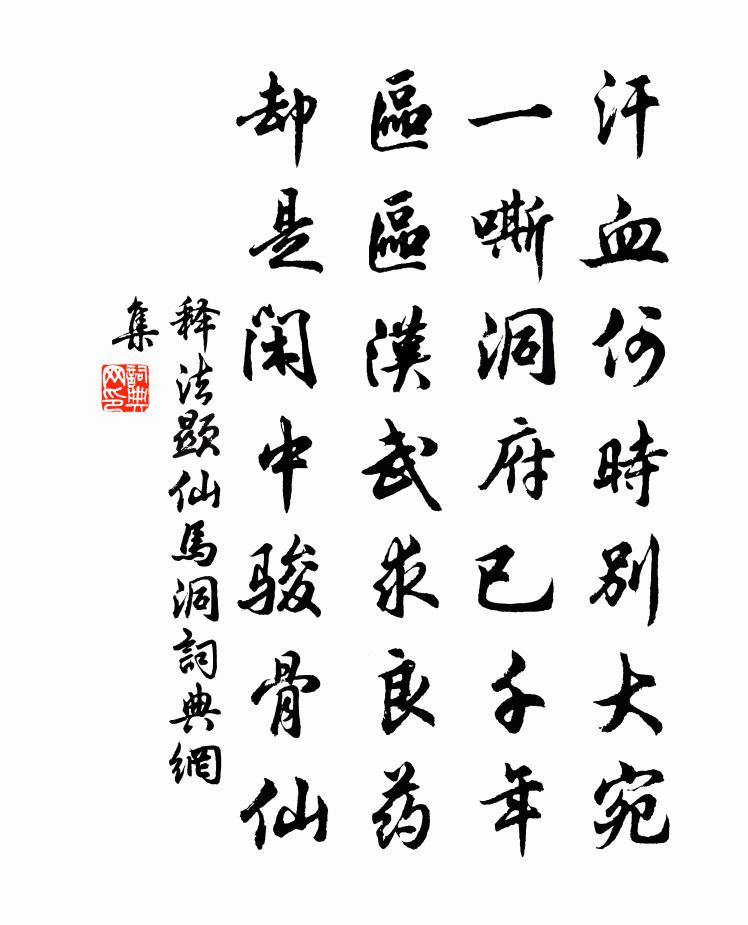 汗血何時別大宛
一嘶洞府已千年
區區漢武求良药
却是闲中骏骨仙
释法顯仙馬洞詞典網
集
詞典
网印